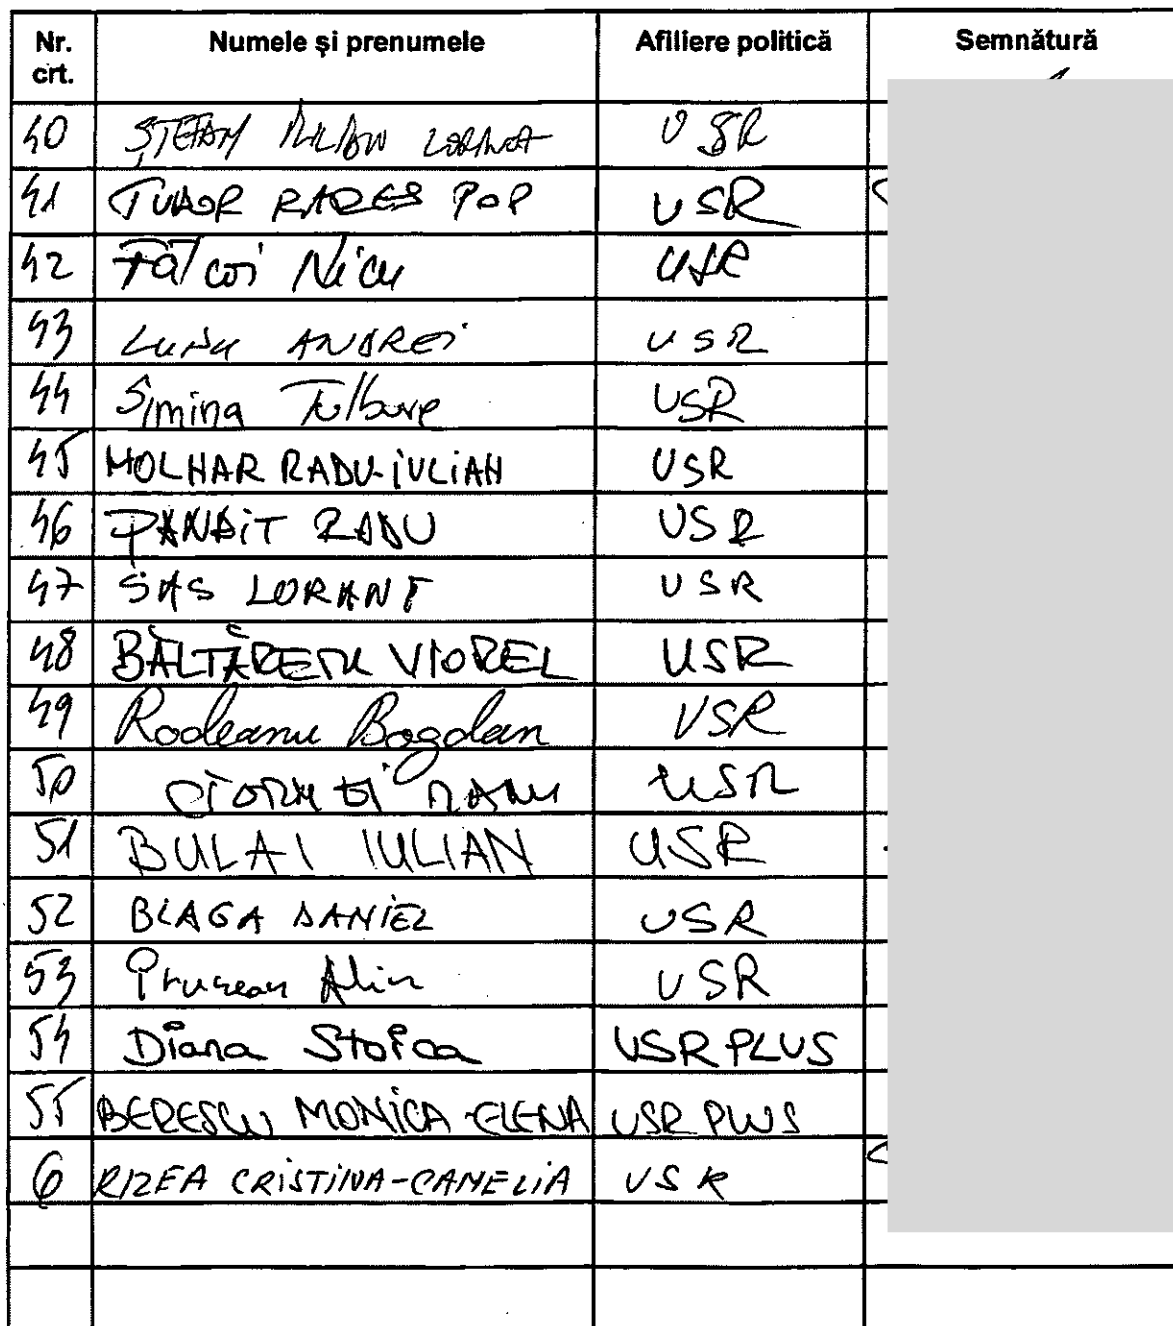 Nr. crt. Numele și prenumele Afiliere politică Semnătură
40 ȘTEFAN IULIAN LORINCZ USR
41 TUDOR RAREȘ POP USR
42 Fălcoi Nicu USR
43 LUPU ANDREI USR
44 Simina Tulbure USR
45 MOLNAR RADU-IULIAN USR
46 PANAIT RADU USR
47 SAS LORANT USR
48 BĂLTĂREȚU VIOREL USR
49 Rodeanu Bogdan USR
50 CIORNEI RADU USR
51 BULAI IULIAN USR
52 BLAGA DANIEL USR
53 Prunean Alin USR
54 Diana Stoica USR PLUS
55 BERESCU MONICA-ELENA USR PLUS
6 RIZEA CRISTINA-CAMELIA USR